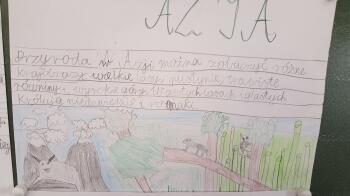 AZJA
Przyroda W Azji można zobaczyć różne
krajobrazy wielkie lasy pustynie trawiste
równiny i wysokie góry W gęstych lasach iglastych
królują niedźwiedzie i